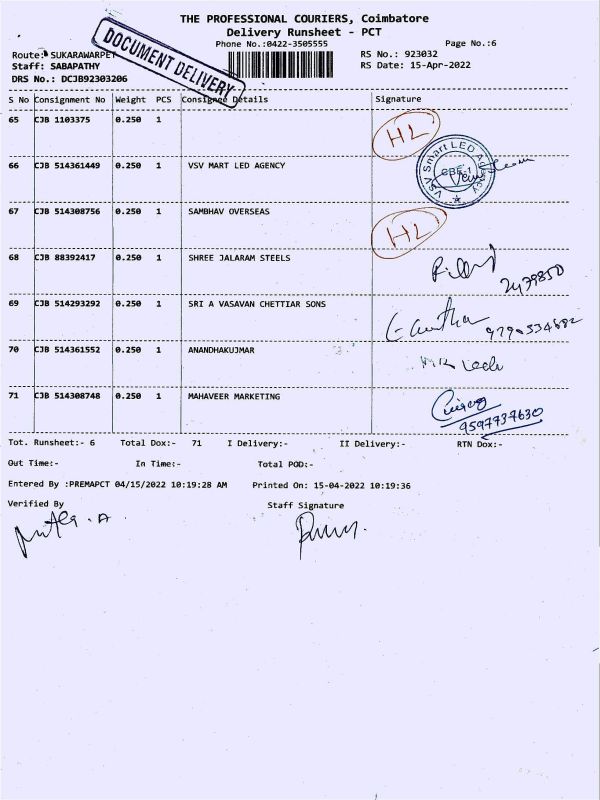 THE PROFESSIONAL COURIERS, Coimbatore
Delivery Runsheet - PCT
Phone No.:0422-3505555
Page No.:6
Route: SUKARAWARPET
RS No.: 923032
Staff: SABAPATHY
RS Date: 15-Apr-2022
DRS No.: DCJB92303206
DOCUMENT DELIVERY
S No Consignment No Weight PCS Consignee Details Signature
65 CJB 1103375 0.250 1 HL
66 CJB 514361449 0.250 1 VSV MART LED AGENCY
VSV Smart LED Agency
CBE-1
67 CJB 514308756 0.250 1 SAMBHAV OVERSEAS HL
68 CJB 88392417 0.250 1 SHREE JALARAM STEELS
2479850
69 CJB 514293292 0.250 1 SRI A VASAVAN CHETTIAR SONS
9790534682
70 CJB 514361552 0.250 1 ANANDHAKUJMAR
71 CJB 514308748 0.250 1 MAHAVEER MARKETING
9597737630
Tot. Runsheet:- 6 Total Dox:- 71 I Delivery:- II Delivery:- RTN Dox:-
Out Time:- In Time:- Total POD:-
Entered By :PREMAPCT 04/15/2022 10:19:28 AM Printed On: 15-04-2022 10:19:36
Verified By Staff Signature